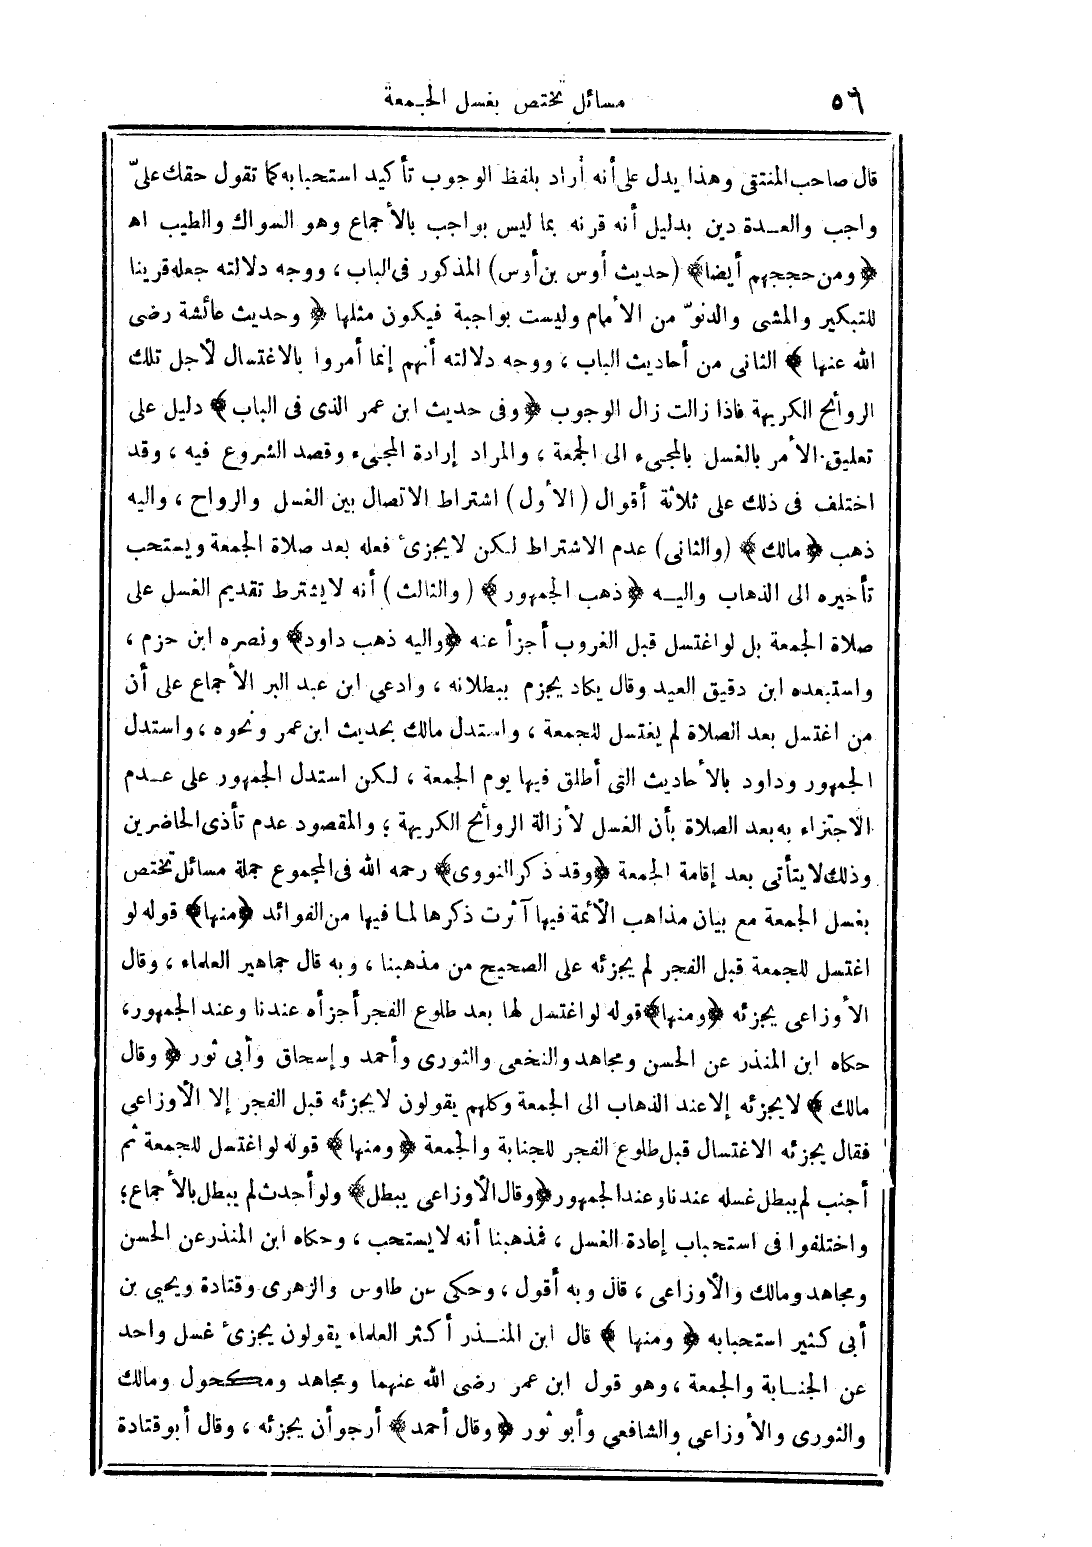 ٥٦ مسائل تختص بغسل الجمعة
قال صاحب المنتقى وهذا يدل على أنه أراد بلفظ الوجوب تأكيد استحبابه كما تقول حقك علىّ
واجب والعدة دين بدليل أنه قرنه بما ليس بواجب بالأجماع وهو السواك والطيب اه
﴿ومن حججهم أيضا﴾ (حديث أوس بن أوس) المذكور فى الباب، ووجه دلالته جعله قرينا
للتبكير والمشى والدنوّ من الأمام وليست بواجبة فيكون مثلها ﴿وحديث عائشة رضى
الله عنها﴾ الثانى من أحاديث الباب، ووجه دلالته أنهم إنما أمروا بالاغتسال لأجل تلك
الروائح الكريهة فاذا زالت زال الوجوب ﴿وفى حديث ابن عمر الذى فى الباب﴾ دليل على
تعليق الأمر بالغسل بالمجىء الى الجمعة، والمراد إرادة المجىء وقصد الشروع فيه، وقد
اختلف فى ذلك على ثلاثة أقوال (الأول) اشتراط الاتصال بين الغسل والرواح، واليه
ذهب ﴿مالك﴾ (والثانى) عدم الاشتراط لكن لا يجزئ فعله بعد صلاة الجمعة ويستحب
تأخيره الى الذهاب واليه ﴿ذهب الجمهور﴾ (والثالث) أنه لا يشترط تقديم الغسل على
صلاة الجمعة بل لو اغتسل قبل الغروب أجزأ عنه ﴿واليه ذهب داود﴾ ونصره ابن حزم،
واستبعده ابن دقيق العيد وقال يكاد يجزم ببطلانه، وادعي ابن عبد البر الأجماع على أن
من اغتسل بعد الصلاة لم يغتسل للجمعة، واستدل مالك بحديث ابن عمر ونحوه، واستدل
الجمهور وداود بالأحاديث التى أطلق فيها يوم الجمعة، لكن استدل الجمهور على عدم
الاجتزاء به بعد الصلاة بأن الغسل لأزالة الروائح الكريهة؛ والمقصود عدم تأذى الحاضرين
وذلك لا يتأتى بعد إقامة الجمعة ﴿وقد ذكر النووى﴾ رحمه الله فى المجموع جملة مسائل تختص
بغسل الجمعة مع بيان مذاهب الأئمة فيها آثرت ذكرها لما فيها من الفوائد ﴿منها﴾ قوله لو
اغتسل للجمعة قبل الفجر لم يجزئه على الصحيح من مذهبنا، وبه قال جماهير العلماء، وقال
الأوزاعى يجزئه ﴿ومنها﴾ قوله لو اغتسل لها بعد طلوع الفجر أجزأه عندنا وعند الجمهور،
حكاه ابن المنذر عن الحسن ومجاهد والنخعى والثورى وأحمد وإسحاق وأبى ثور ﴿وقال
مالك﴾ لا يجزئه إلا عند الذهاب الى الجمعة وكلهم يقولون لا يجزئه قبل الفجر إلا الأوزاعى
فقال يجزئه الاغتسال قبل طلوع الفجر للجنابة والجمعة ﴿ومنها﴾ قوله لو اغتسل للجمعة ثم
أجنب لم يبطل غسله عندنا وعند الجمهور ﴿وقال الأوزاعى يبطل﴾ ولو أحدث لم يبطل بالأجماع؛
واختلفوا فى استحباب إعادة الغسل، فمذهبنا أنه لا يستحب، وحكاه ابن المنذر عن الحسن
ومجاهد ومالك والأوزاعى، قال وبه أقول، وحكى عن طاوس والزهرى وقتادة ويحيي بن
أبى كثير استحبابه ﴿ومنها﴾ قال ابن المنذر أكثر العلماء يقولون يجزئ غسل واحد
عن الجنابة والجمعة، وهو قول ابن عمر رضى الله عنهما ومجاهد ومكحول ومالك
والثورى والأوزاعى والشافعي وأبو ثور ﴿وقال أحمد﴾ أرجو أن يجزئه، وقال أبو قتادة